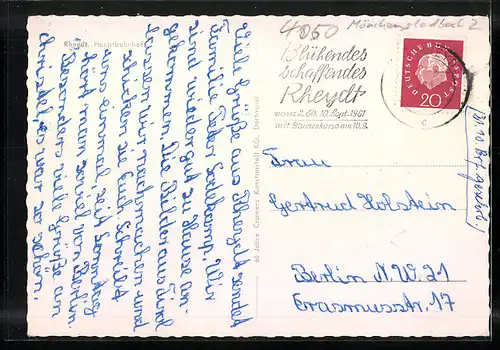 4050 Mönchengladbach 2
Rheydt, Hauptbahnhof
Blühendes
schaffendes
Rheydt
vom 2. bis 10. Sept. 1961
mit Blumenkorso am 10.9.
DEUTSCHE BUNDESPOST
20
c
Viele Grüße aus Rheydt sendet
Familie Peter. Wir
sind wieder gut zu Hause an-
gekommen. Die Bilder aus Tirol
lassen wir nachmachen und
schicken sie Euch. Schreibt
uns einmal, seit Sonntag
hört man soviel von Berlin.
Besonders viele Grüße an
Christel, es war so schön.
66 Jahre Cramers Kunstanstalt KG., Dortmund
Frau
Gertrud Holstein
Berlin N.W. 21
Erasmusstr. 17